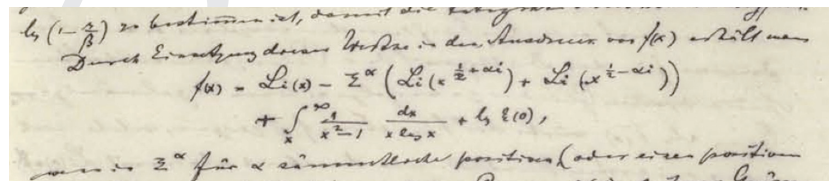 log (1 - s/β) zu bestimmen ist, damit die
Durch Einsetzung dieser Werthe in den Ausdruck von f(x) erhält man
f(x) = Li(x) - Σ^α (Li(x^{1/2 + αi}) + Li(x^{1/2 - αi}))
+ ∫_x^∞ 1/(x^2-1) dx/(x log x) + log ξ(0),
wenn in Σ^α für α sämmtliche positiven (oder einen positiven